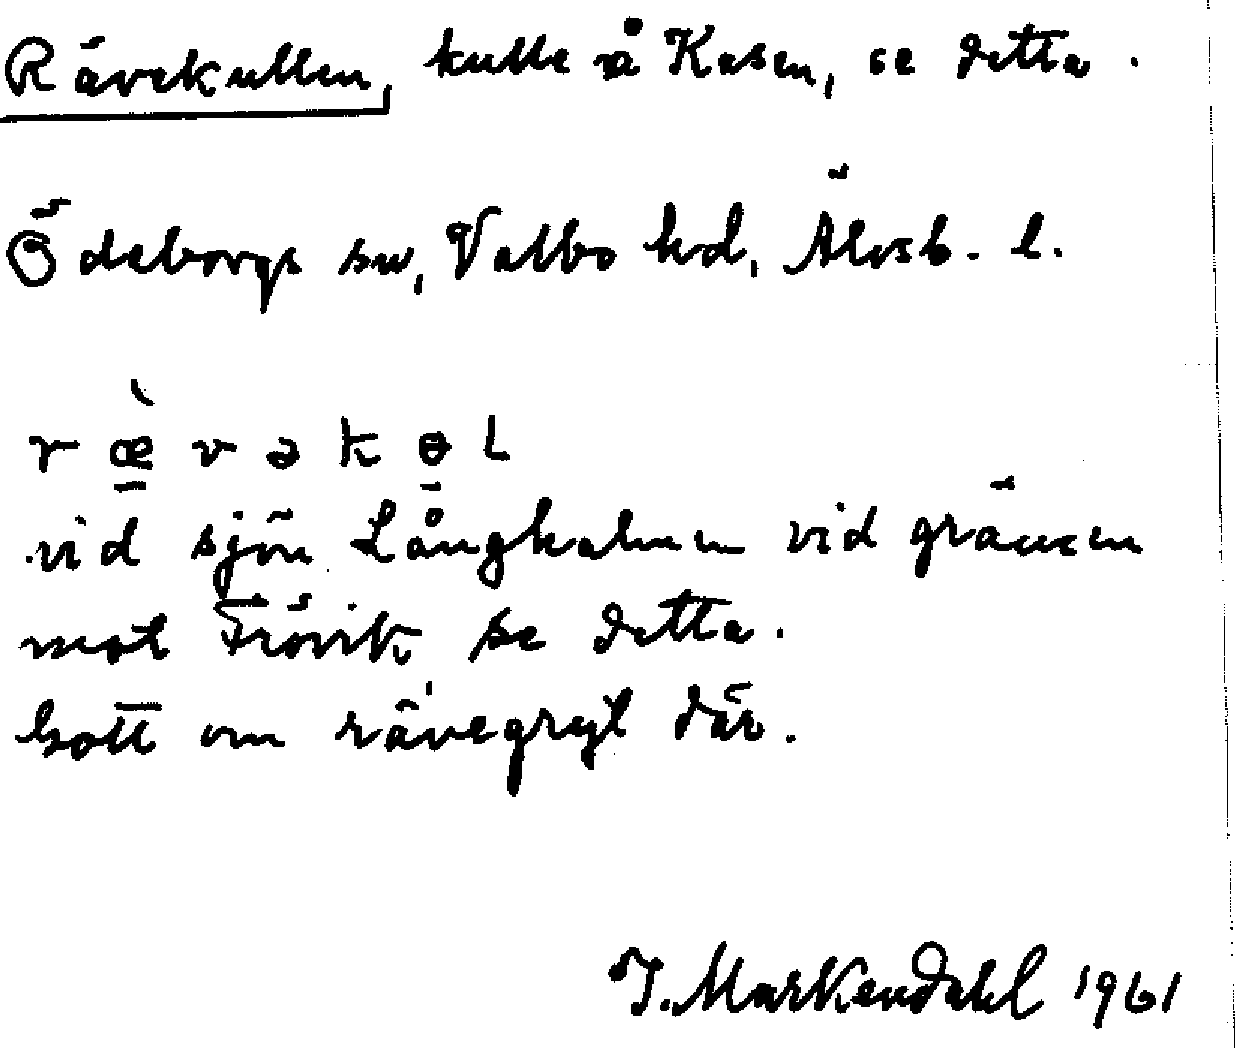 Rävekullen, kulle å Kasen, se detta.
Ödeborgs sn, Valbo hd, Älvsb. l.
r æ̀ v ə k ɵ l
vid sjön Långhalmen vid gränsen
mot Frövik se detta.
Gott om rävegryt där.
I. Markendahl 1961